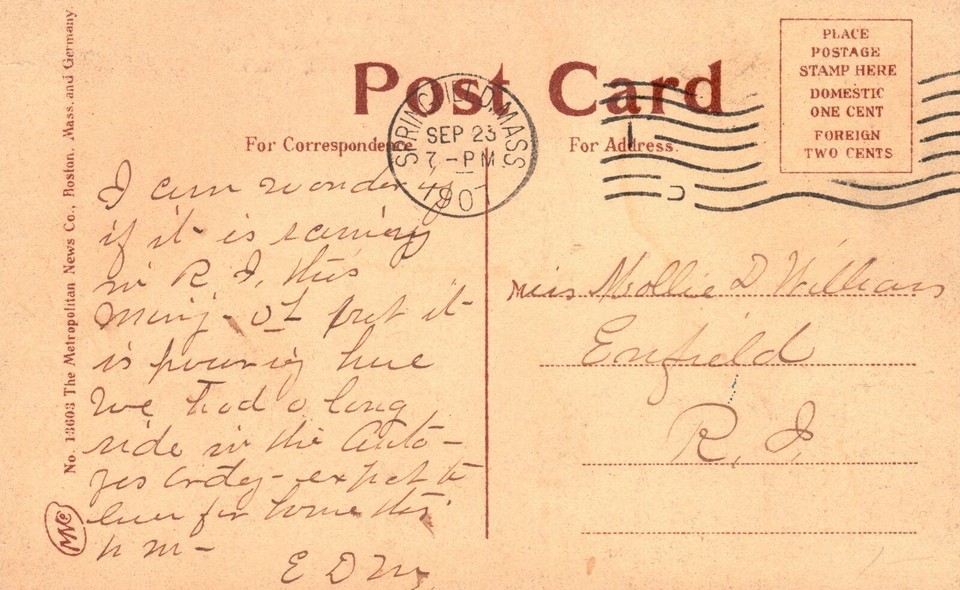 Post Card
PLACE
POSTAGE
STAMP HERE
DOMESTIC
ONE CENT
FOREIGN
TWO CENTS
SPRINGFIELD, MASS
SEP 23
7 - PM
190
For Correspondence.
For Address.
I am wondering
if it is raining
in R. I. this
it
is pouring here
We had a long
ride in the Auto -
yesterday - expect to
leave for home this
E D M
Miss Mollie D Williams
Enfield
R. I.
No. 13603 The Metropolitan News Co., Boston, Mass. and Germany.